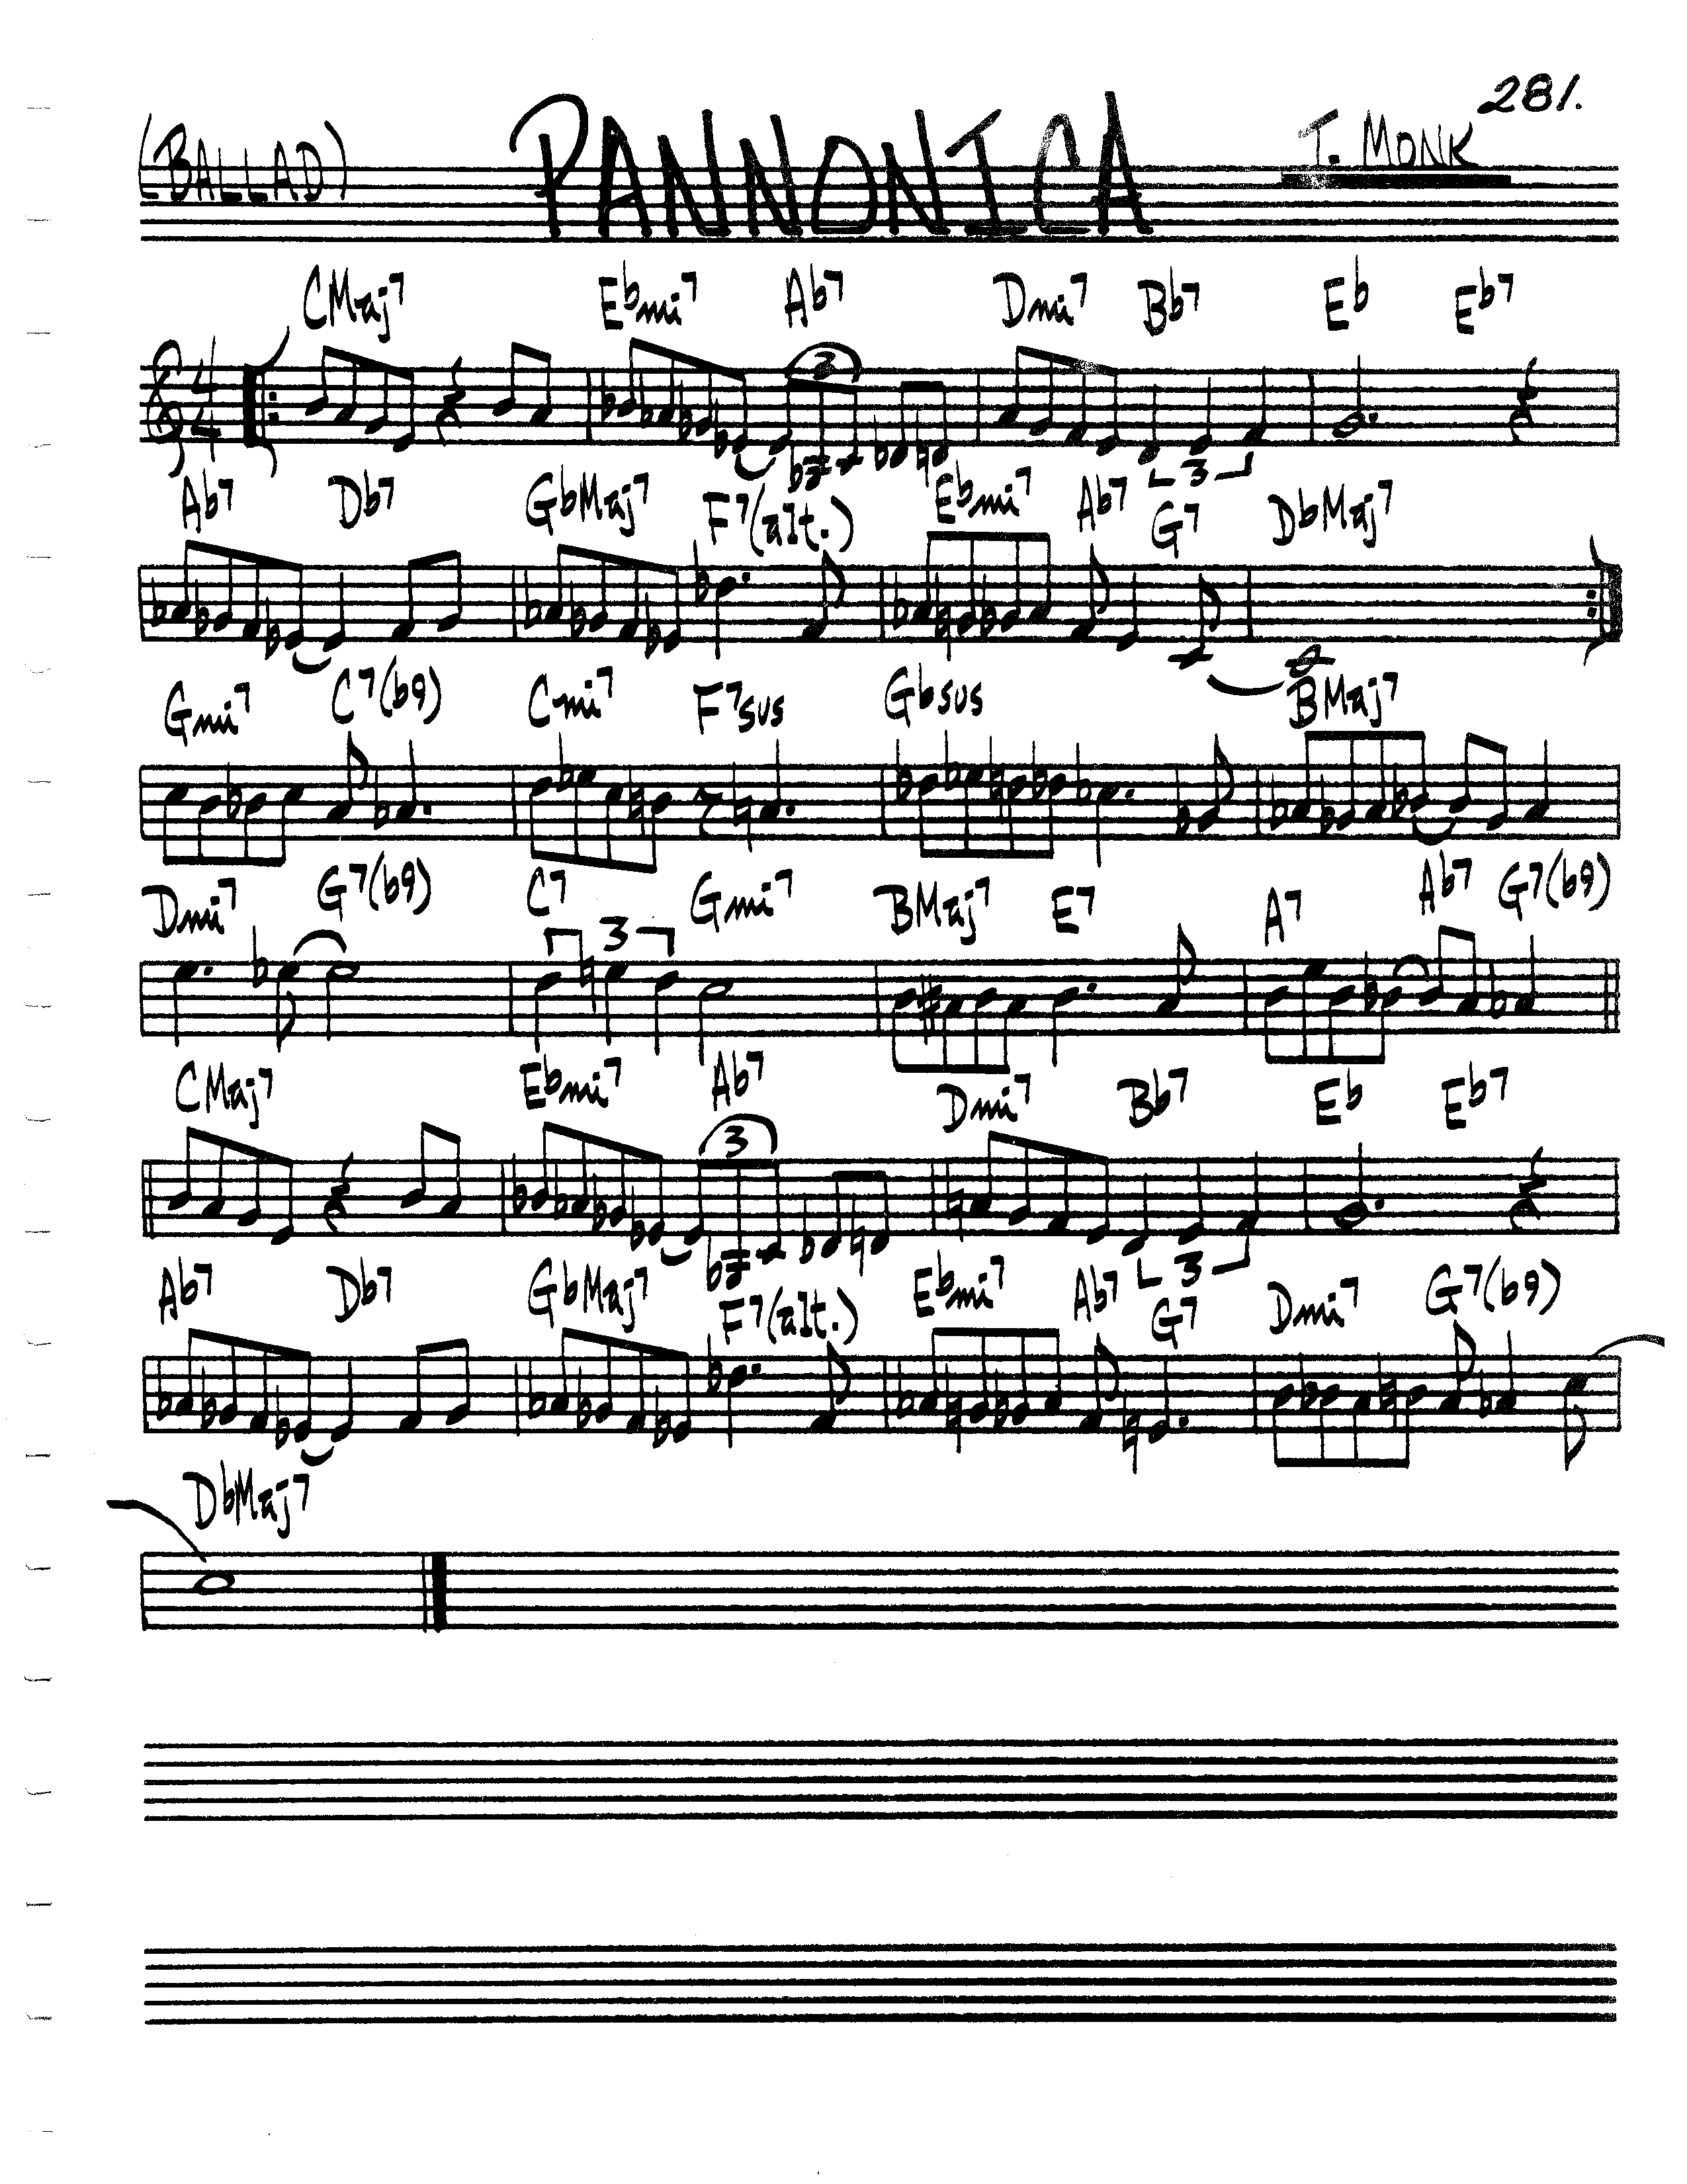 281.
(BALLAD) PANNONICA T. MONK
CMaj7 Ebmi7 Ab7 Dmi7 Bb7 Eb Eb7
4
4
3
3
Ab7 Db7 GbMaj7 F7(alt.) Ebmi7 Ab7 G7 DbMaj7
Gmi7 C7(b9) Cmi7 F7sus Gbsus BMaj7
Dmi7 G7(b9) C7 Gmi7 BMaj7 E7 A7 Ab7 G7(b9)
3
CMaj7 Ebmi7 Ab7 Dmi7 Bb7 Eb Eb7
3
3
Ab7 Db7 GbMaj7 F7(alt.) Ebmi7 Ab7 G7 Dmi7 G7(b9)
DbMaj7